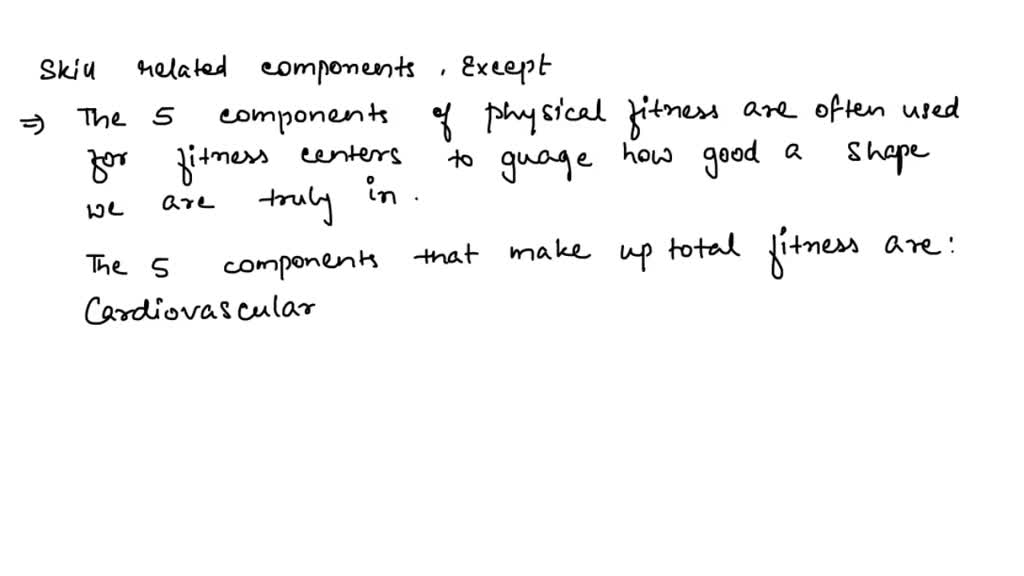 Skill related components, Except
⇒ The 5 components of physical fitness are often used
for fitness centers to guage how good a shape
we are truly in.
The 5 components that make up total fitness are:
Cardiovascular